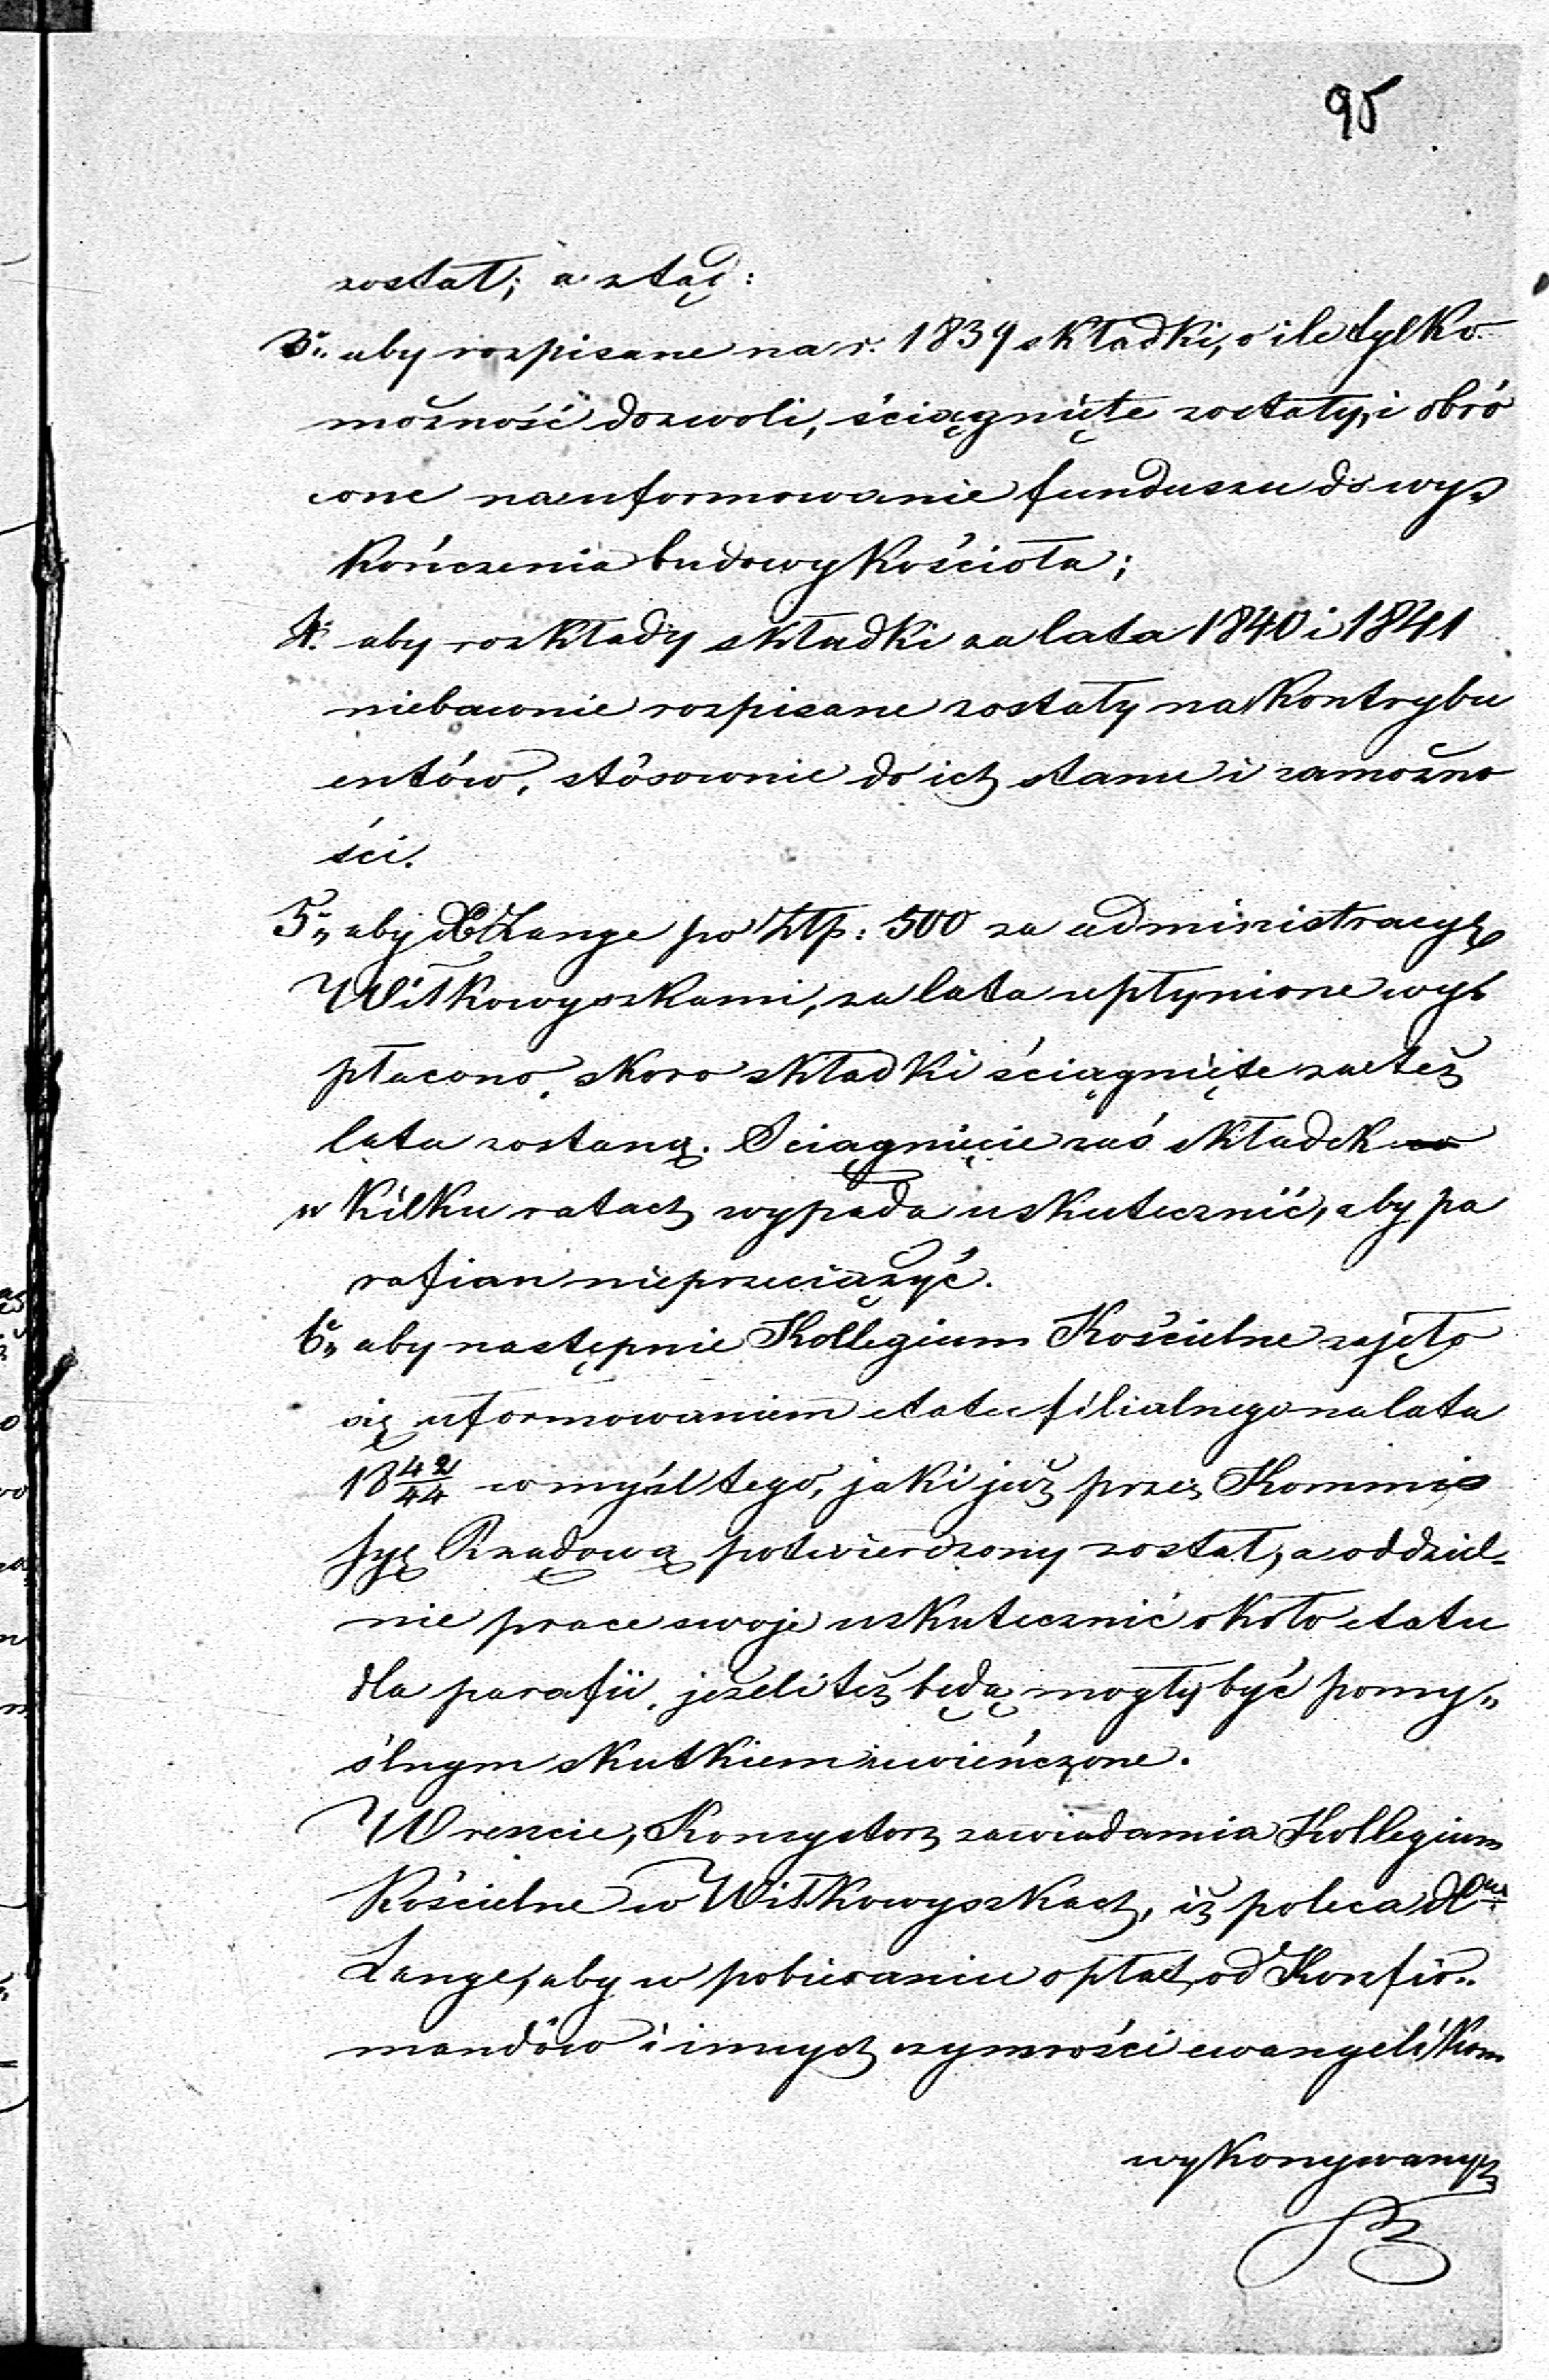 95
został; a ztąd:
3º„ aby rozpisane na r. 1839 składki, o ile tylko
możność dozwoli, ściągnięte zostały, i obró
cone na uformowanie funduszu do wy„
kończenia budowy Kościoła;
4º. aby rozkłady składki za lata 1840 i 1841
niebawnie rozpisane zostały na Kontrybu
entów, stósownie do ich stanu i zamożno
ści.
5º„ aby Lange po Złp: 500 za administracyę
Wiłkowyszkami, za lata upłynione wy„
płacono, skoro składki ściągnięte za też
lata zostaną. Ściągnięcie zaś składek
w kilku ratach wypada uskutecznić, aby pa
rafian nieprzeciążyć.
6º„ aby następnie Kollegium Kościelne zajęło
się uformowaniem etatu filialnego na lata
18 42/44 w myśl tego, jaki już przez Kommis
syę Rządową potwierdzony został, a oddziel-
nie prace swoje uskutecznić około etatu
dla parafii, jeżeli też będą mogły być pomy„
ślnym skutkiem uwieńczone.
Wreszcie, Konsystorz zawiadamia Kollegium
Kościelne w Wiłkowyszkach, iż poleca
Lange, aby w pobieraniu opłat, od Konfir„
mandów i innych czynności ewangelikom
wykonywanych